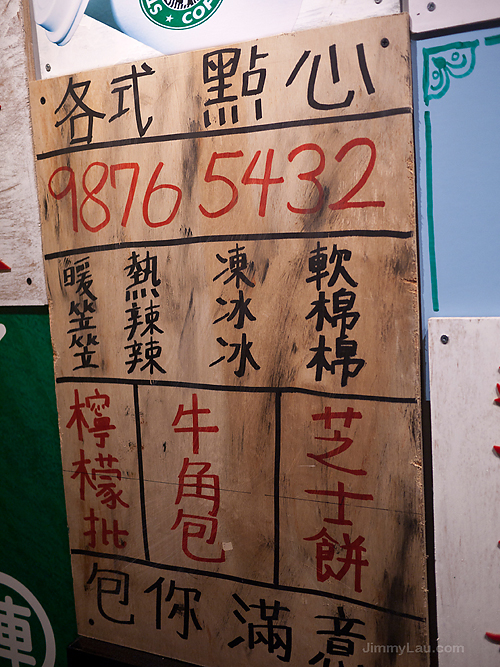 各式 點心
9876 5432
暖笠笠 熱辣辣 凍冰冰 軟棉棉
檸檬批 牛角包 芝士餅
包你滿意
JimmyLau.com